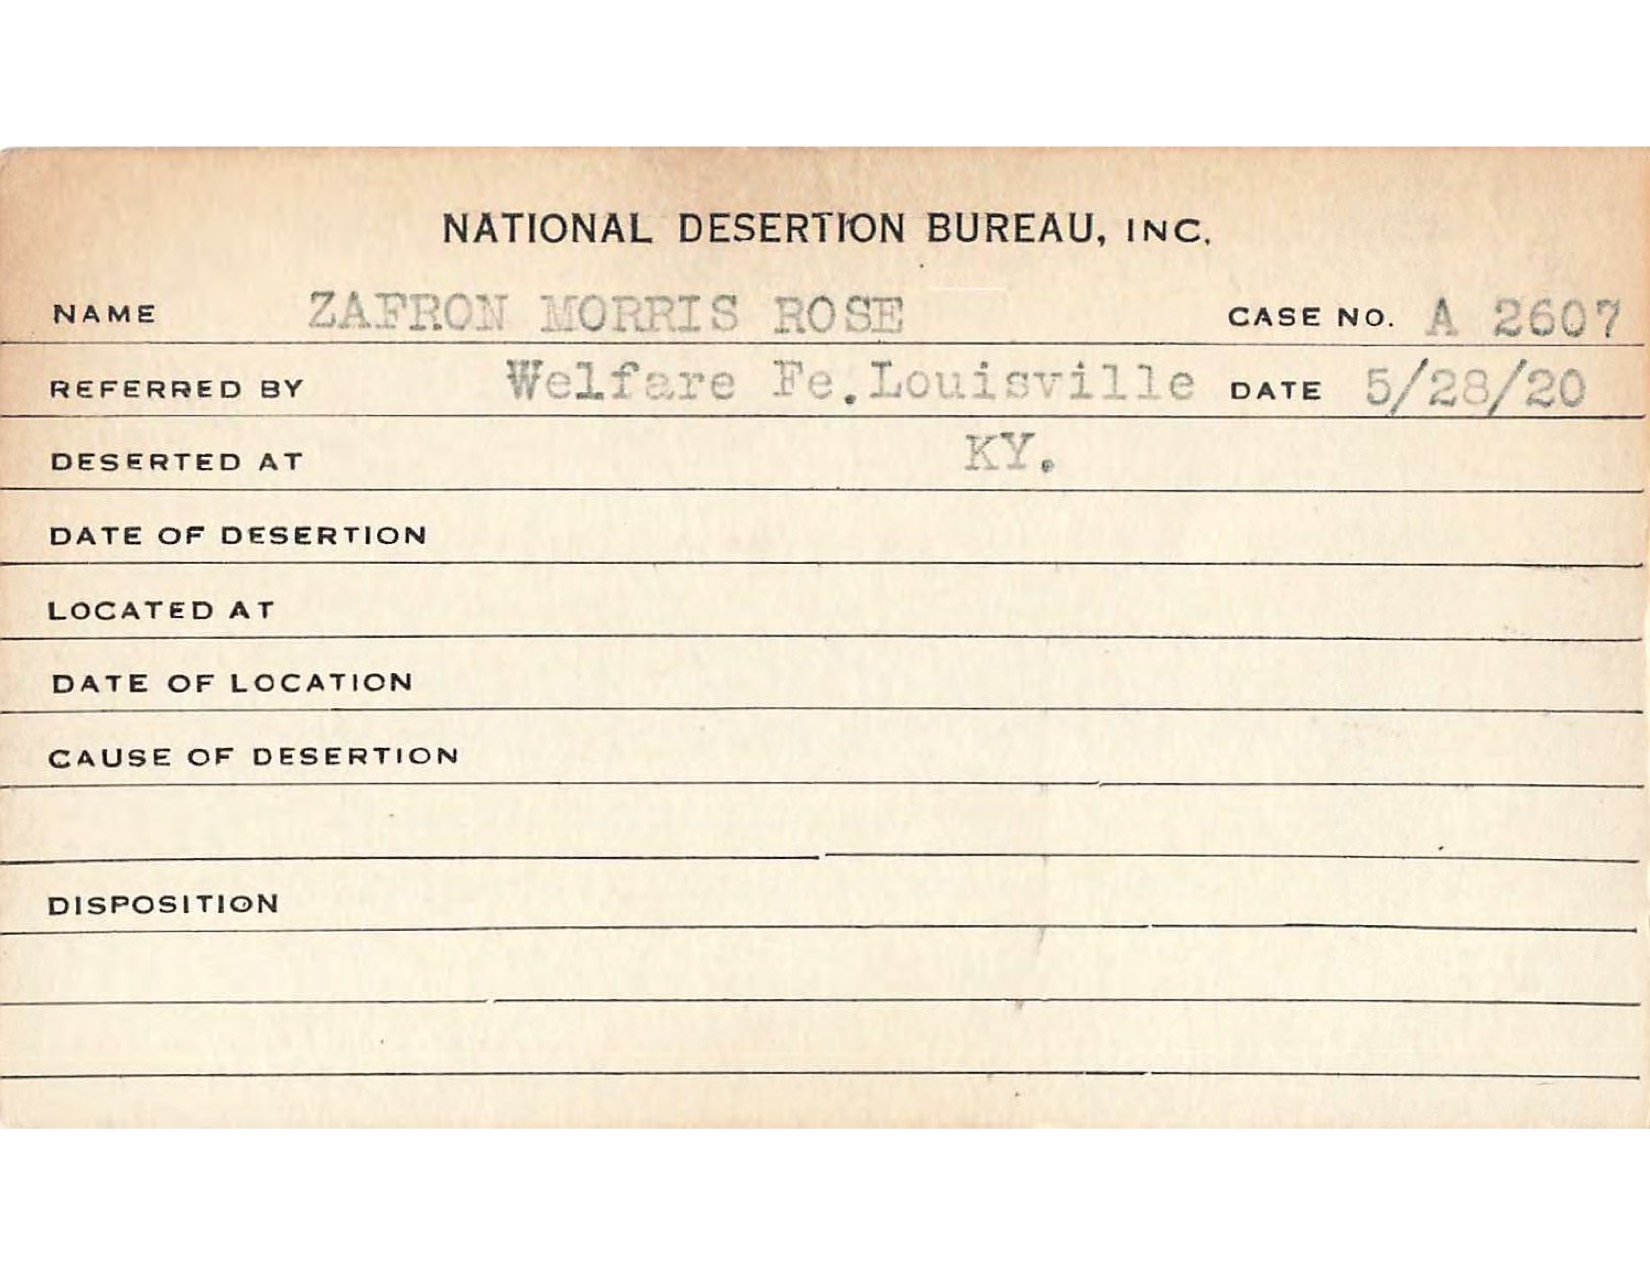 NATIONAL DESERTION BUREAU, INC.
NAME ZAFRON MORRIS ROSE CASE NO. A 2607
REFERRED BY Welfare Fe.Louisville DATE 5/28/20
DESERTED AT KY.
DATE OF DESERTION
LOCATED AT
DATE OF LOCATION
CAUSE OF DESERTION
DISPOSITION